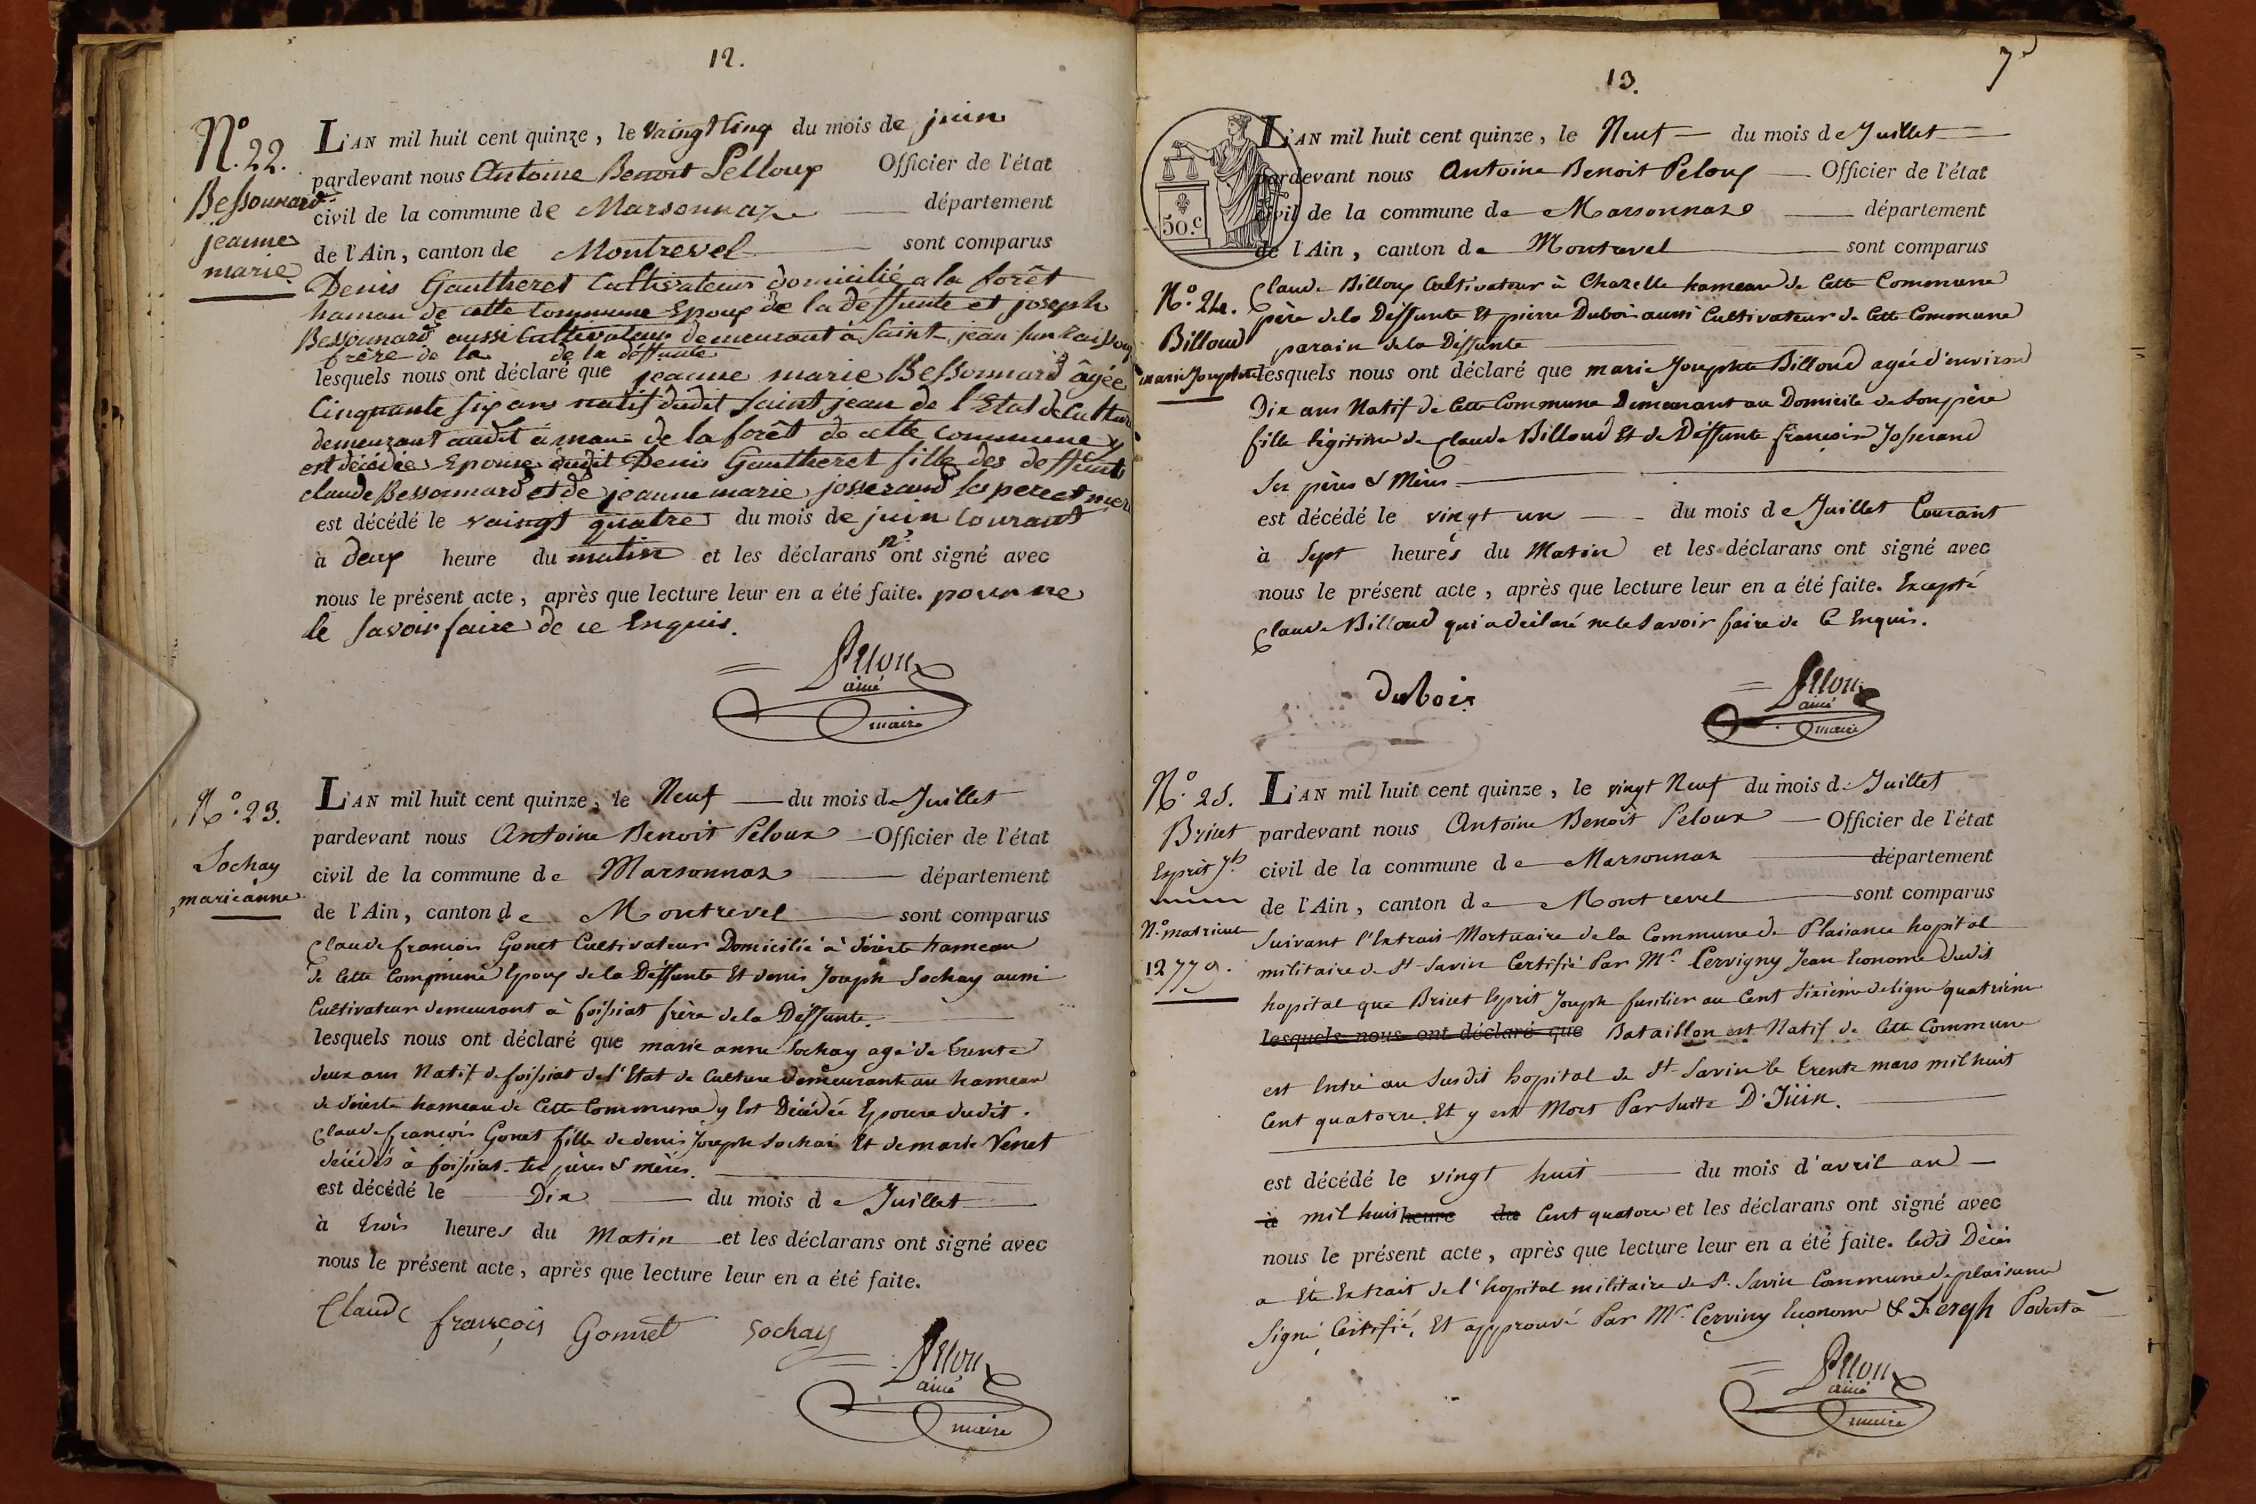 12.
N.º 22.
Bessonnard
jeanne
marie
L'AN mil huit cent quinze, le vaingt cinq du mois de juin
pardevant nous Antoine Benoit Pelloux Officier de l'état
civil de la commune de Marsonnaz département
de l'Ain, canton de Montrevel sont comparus
Denis Gautheret Cultivateur domicilié a la forêt
hamau de cette Commune Epoux de la déffunte et joseph
Bessonnard aussi Cultivateur demeurant à Saint jean sur
frère de la de la déffunte
lesquels nous ont déclaré que jeanne marie Bessonnard âgée
Cinquante six ans natif dudit Saint jean de l'Etat de Cultur
demeurant audit amau de la forêt de cette commune y
est décédée Epouse dudit Denis Gautheret fille des deffunts
claude Bessonnard et de jeanne marie josserand ses pere et mer
est décédé le vaingt quatre du mois de juin Courant
à deux heure du matin et les déclarans n'ont signé avec
nous le présent acte, après que lecture leur en a été faite. pour ne
le Savoir faire de ce Enquis.
Pelloux
ainé
maire
N.º 23.
Sochay
marie anne
L'AN mil huit cent quinze, le Neuf du mois de Juillet
pardevant nous Antoine Benoit Peloux Officier de l'état
civil de la commune de Marsonnaz département
de l'Ain, canton de Montrevel sont comparus
Claude françois Gonet Cultivateur Domicilié à hameau
de Cette Commune Epoux de la Déffunte Et denis Joseph Sochay aussi
Cultivateur demeurant à foissiat frère de la Déffunte.
lesquels nous ont déclaré que marie anne Sochay agé de trente
deux ans Natif de foissiat de l'Etat de Culture demeurante au hameau
de hameau de Cette Commune y Est Décédée Epouse dudit
Claude françois Gonet fille de denis Joseph Sochai Et de marie Venet
décédés à foissiat ses pères & mères.
est décédé le Dix du mois de Juillet
à trois heures du Matin et les déclarans ont signé avec
nous le présent acte, après que lecture leur en a été faite.
Claude françois Gonnet Sochay
Pelloux
ainé
maire
13.
7
50.c
L'AN mil huit cent quinze, le Neuf du mois de Juillet
pardevant nous Antoine Benoit Peloux Officier de l'état
civil de la commune de Marsonnaz département
de l'Ain, canton de Montrevel sont comparus
N.º 24.
Billoud
marie Josephte
Claude Billoux Cultivateur à Chazelle hameau de Cette Commune
père de la Déffunte Et pierre Dubois aussi Cultivateur de Cette Commune
parain de la Déffunte
lesquels nous ont déclaré que marie Josephte Billoud agée d'environ
Dix ans Natif de Cette Commune Demeurant au Domicile de Son père
fille légitime de Claude Billoud Et de Déffunte françoise Josserand
Ses pères & Mères
est décédé le vingt un du mois de Juillet Courant
à Sept heures du Matin et les déclarans ont signé avec
nous le présent acte, après que lecture leur en a été faite. Excepté
Claude Billoud qui a déclaré ne le Savoir faire de Ce Enquis.
dubois
Pelloux
ainé
maire
N.º 25.
Bricet
Esprit Jh
N.º matricul
12779.
L'AN mil huit cent quinze, le vingt Neuf du mois de Juillet
pardevant nous Antoine Benoit Peloux Officier de l'état
civil de la commune de Marsonnaz département
de l'Ain, canton de Montrevel sont comparus
Suivant l'Extrait Mortuaire de la Commune de Plaisance hopital
militaire de St Savin Certifié Par Mr Cervigny Jean Econome dudit
hopital que Bricet Esprit Joseph fusilier au Cent Sixième de ligne quatrième
lesquels nous ont déclaré que Bataillon est Natif de Cette Commune
est Entré au Susdit hopital de St Savin le trente mars mil huit
Cent quatorze Et y est Mort Par Suitte
est décédé le vingt huit du mois d'avril an
à mil huit heure du Cent quatorze et les déclarans ont signé avec
nous le présent acte, après que lecture leur en a été faite. ledit Décès
a Eté Extrait de l'hopital militaire de St. Savin Commune de plaisance
Signé, Certifié, Et approuvé Par Mr Cerviny Econome & Podesta
Pelloux
ainé
maire